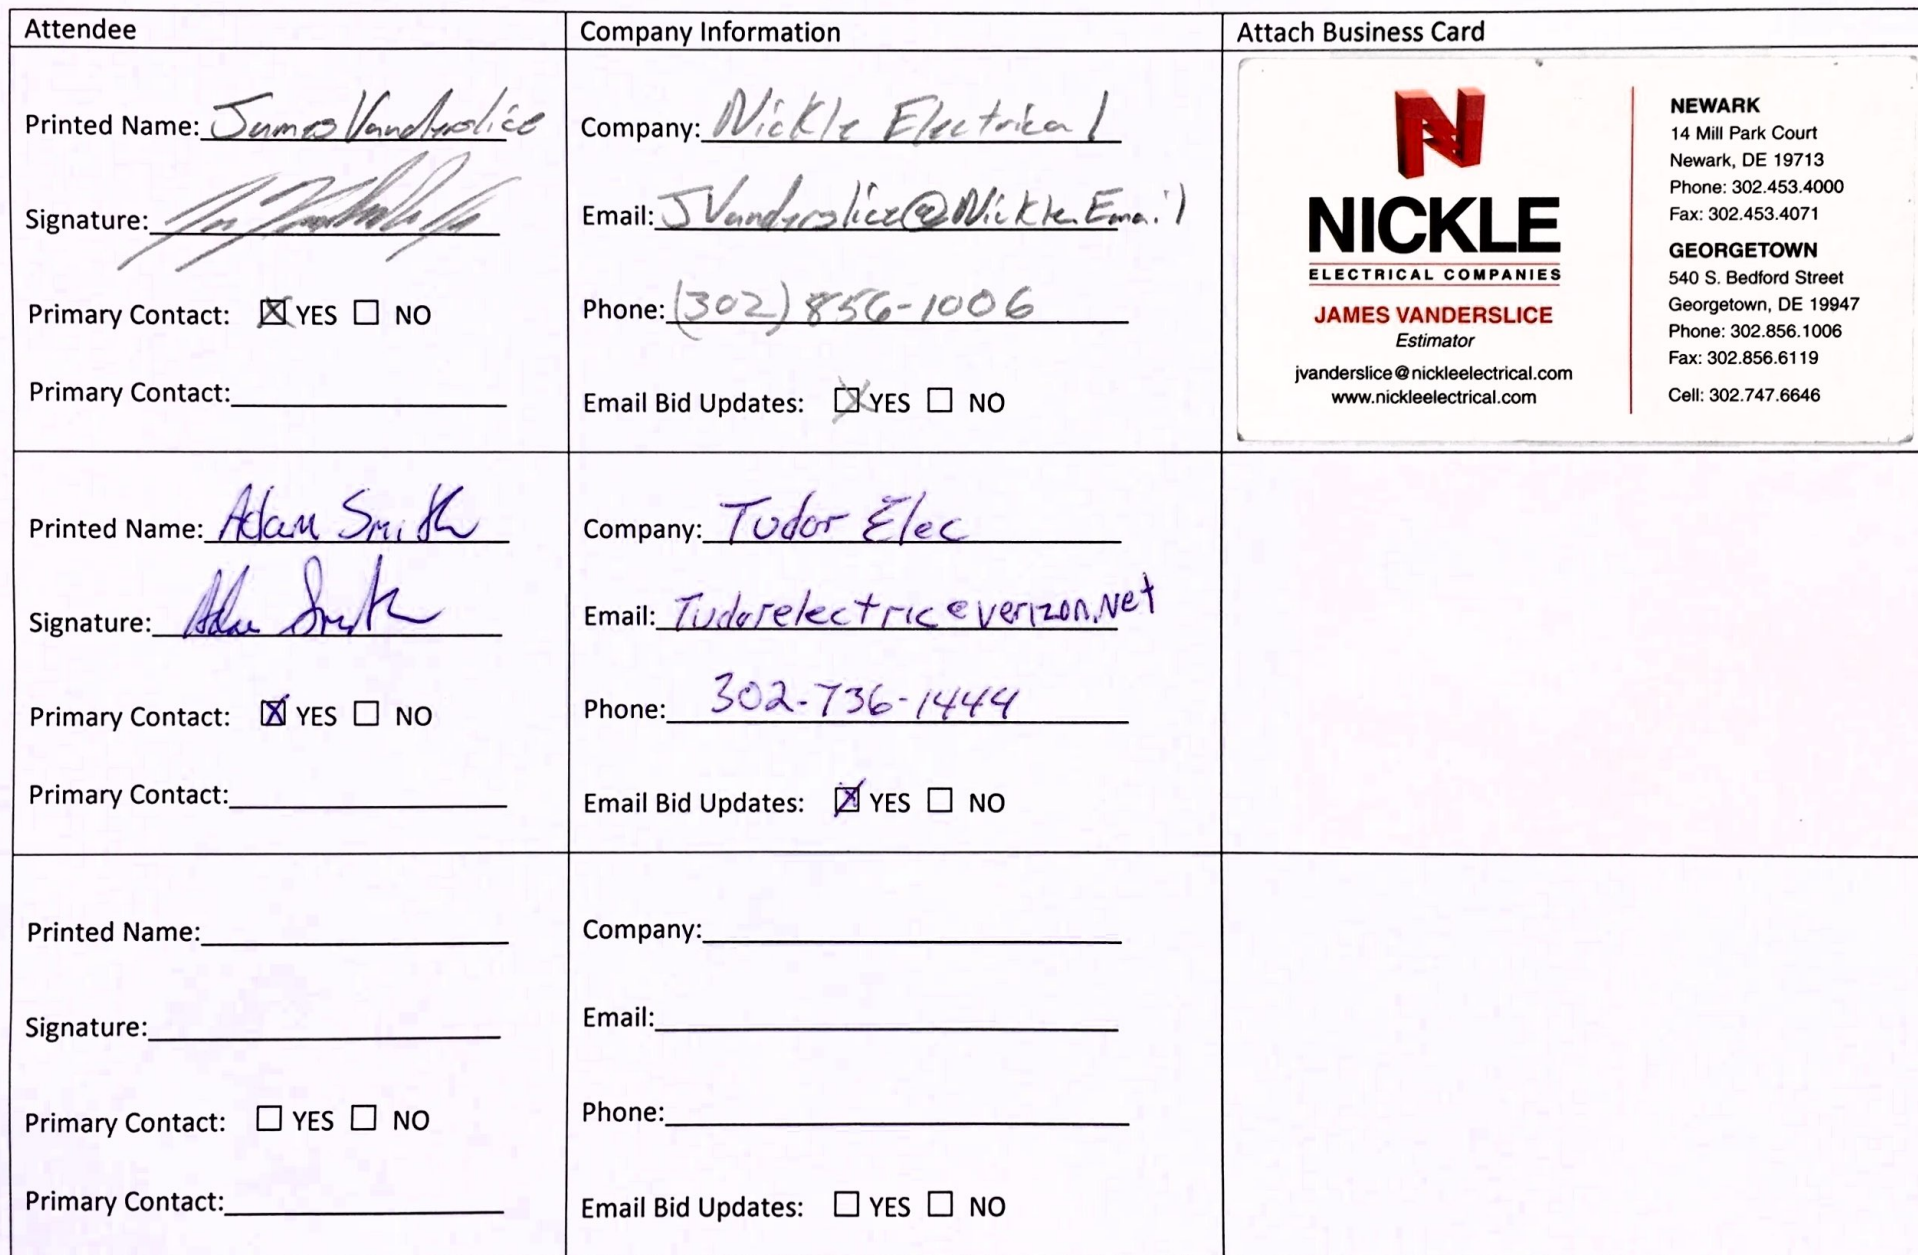 Attendee
Company Information
Attach Business Card
Printed Name: James Vanderslice
Signature:
Primary Contact: ☒ YES ☐ NO
Primary Contact:
Company: Nickle Electrical
Email: JVanderslice@Nickle.Email
Phone: (302) 856-1006
Email Bid Updates: ☒ YES ☐ NO
N
NICKLE
ELECTRICAL COMPANIES
JAMES VANDERSLICE
Estimator
jvanderslice@nickleelectrical.com
www.nickleelectrical.com
NEWARK
14 Mill Park Court
Newark, DE 19713
Phone: 302.453.4000
Fax: 302.453.4071
GEORGETOWN
540 S. Bedford Street
Georgetown, DE 19947
Phone: 302.856.1006
Fax: 302.856.6119
Cell: 302.747.6646
Printed Name: Adam Smith
Signature: Adam Smith
Primary Contact: ☒ YES ☐ NO
Primary Contact:
Company: Tudor Elec
Email: Tudorelectric@verizon.Net
Phone: 302-736-1444
Email Bid Updates: ☒ YES ☐ NO
Printed Name:
Signature:
Primary Contact: ☐ YES ☐ NO
Primary Contact:
Company:
Email:
Phone:
Email Bid Updates: ☐ YES ☐ NO